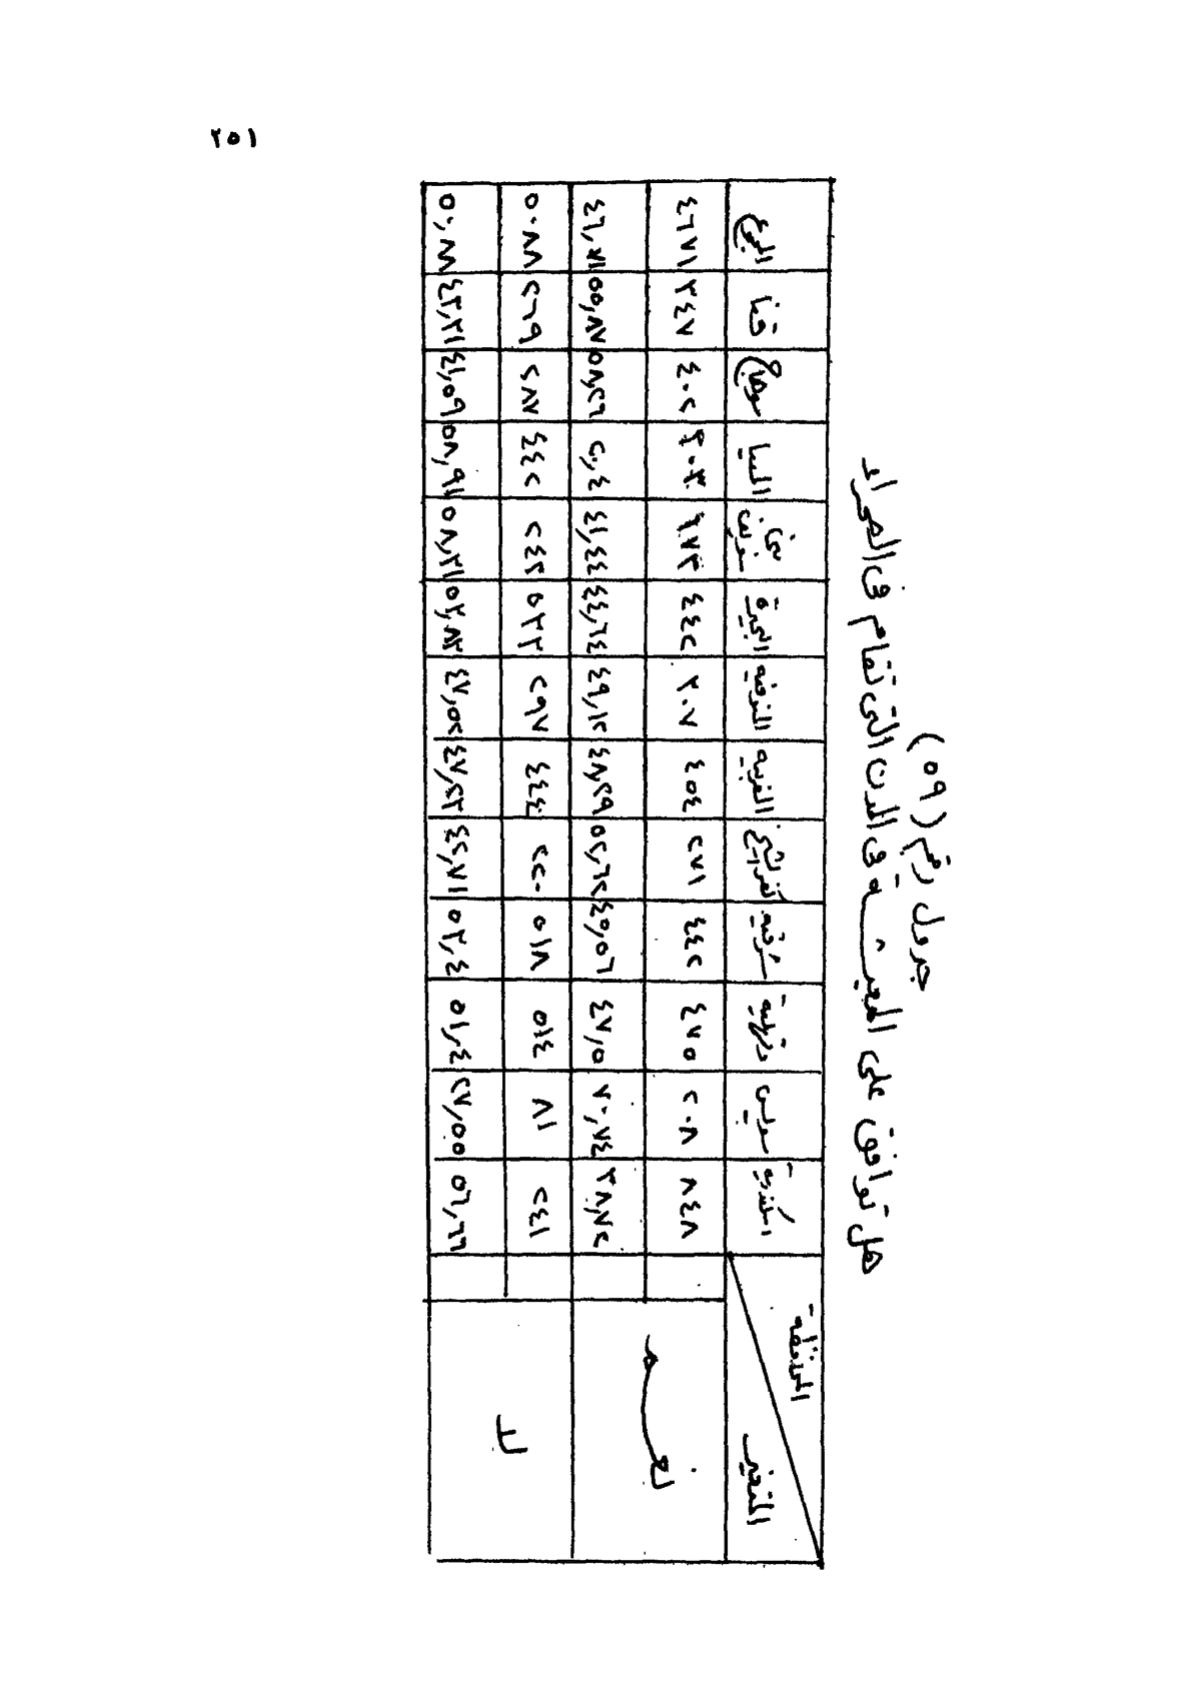 ٢٥١
جدول رقم (٥٩)
هل توافق على المعيشة فى المدن التى تقام فى الصحراء
المحافظة
المتغير
اسكندرية سويس دقهلية شرقيه كفر الشيخ الغربيه المنوفيه الجيزة بنى سويف المنيا سوهاج قنا المجموع
نعم
٨٤٨ ٢٠٨ ٤٧٥ ٤٤٢ ٢٧١ ٤٥٤ ٣٠٧ ٤٤٢ ١٧٣ ٣٠٣ ٤٠٢ ٣٤٧ ٤٦٧١
٣٨,٨٢ ٨٠,٧٤ ٤٧,٥ ٤٥,٥٦ ٥٢,٦٢ ٤٨,٢٩ ٤٩,١٢ ٤٤,٦٤ ٤١,٤٤ ٤٠,٤ ٥٨,٢٦ ٥٥,٨٧ ٤٦,٧١
لا
٢٤١ ٧١ ٥١٤ ٥١٨ ٢٢٠ ٤٤٤ ٢٩٧ ٥٢٢ ٢٤٣ ٤٤٢ ٢٨٧ ٢٦٩ ٥٠٨٨
٥٦,٦٦ ٢٧,٥٥ ٥١,٤ ٥٣,٤ ٤٢,٨١ ٤٧,٢٣ ٤٧,٥٢ ٥٢,٧٣ ٥٨,٢١ ٥٨,٩١ ٤١,٥٩ ٤٣,٣١ ٥٠,٨٨